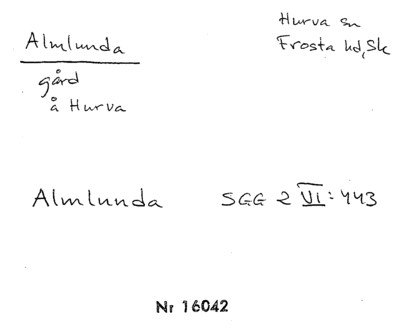 Almlunda
Hurva sn
Frosta hd, Sk
gård
å Hurva
Almlunda SGG 2 VI: 443
Nr 16042